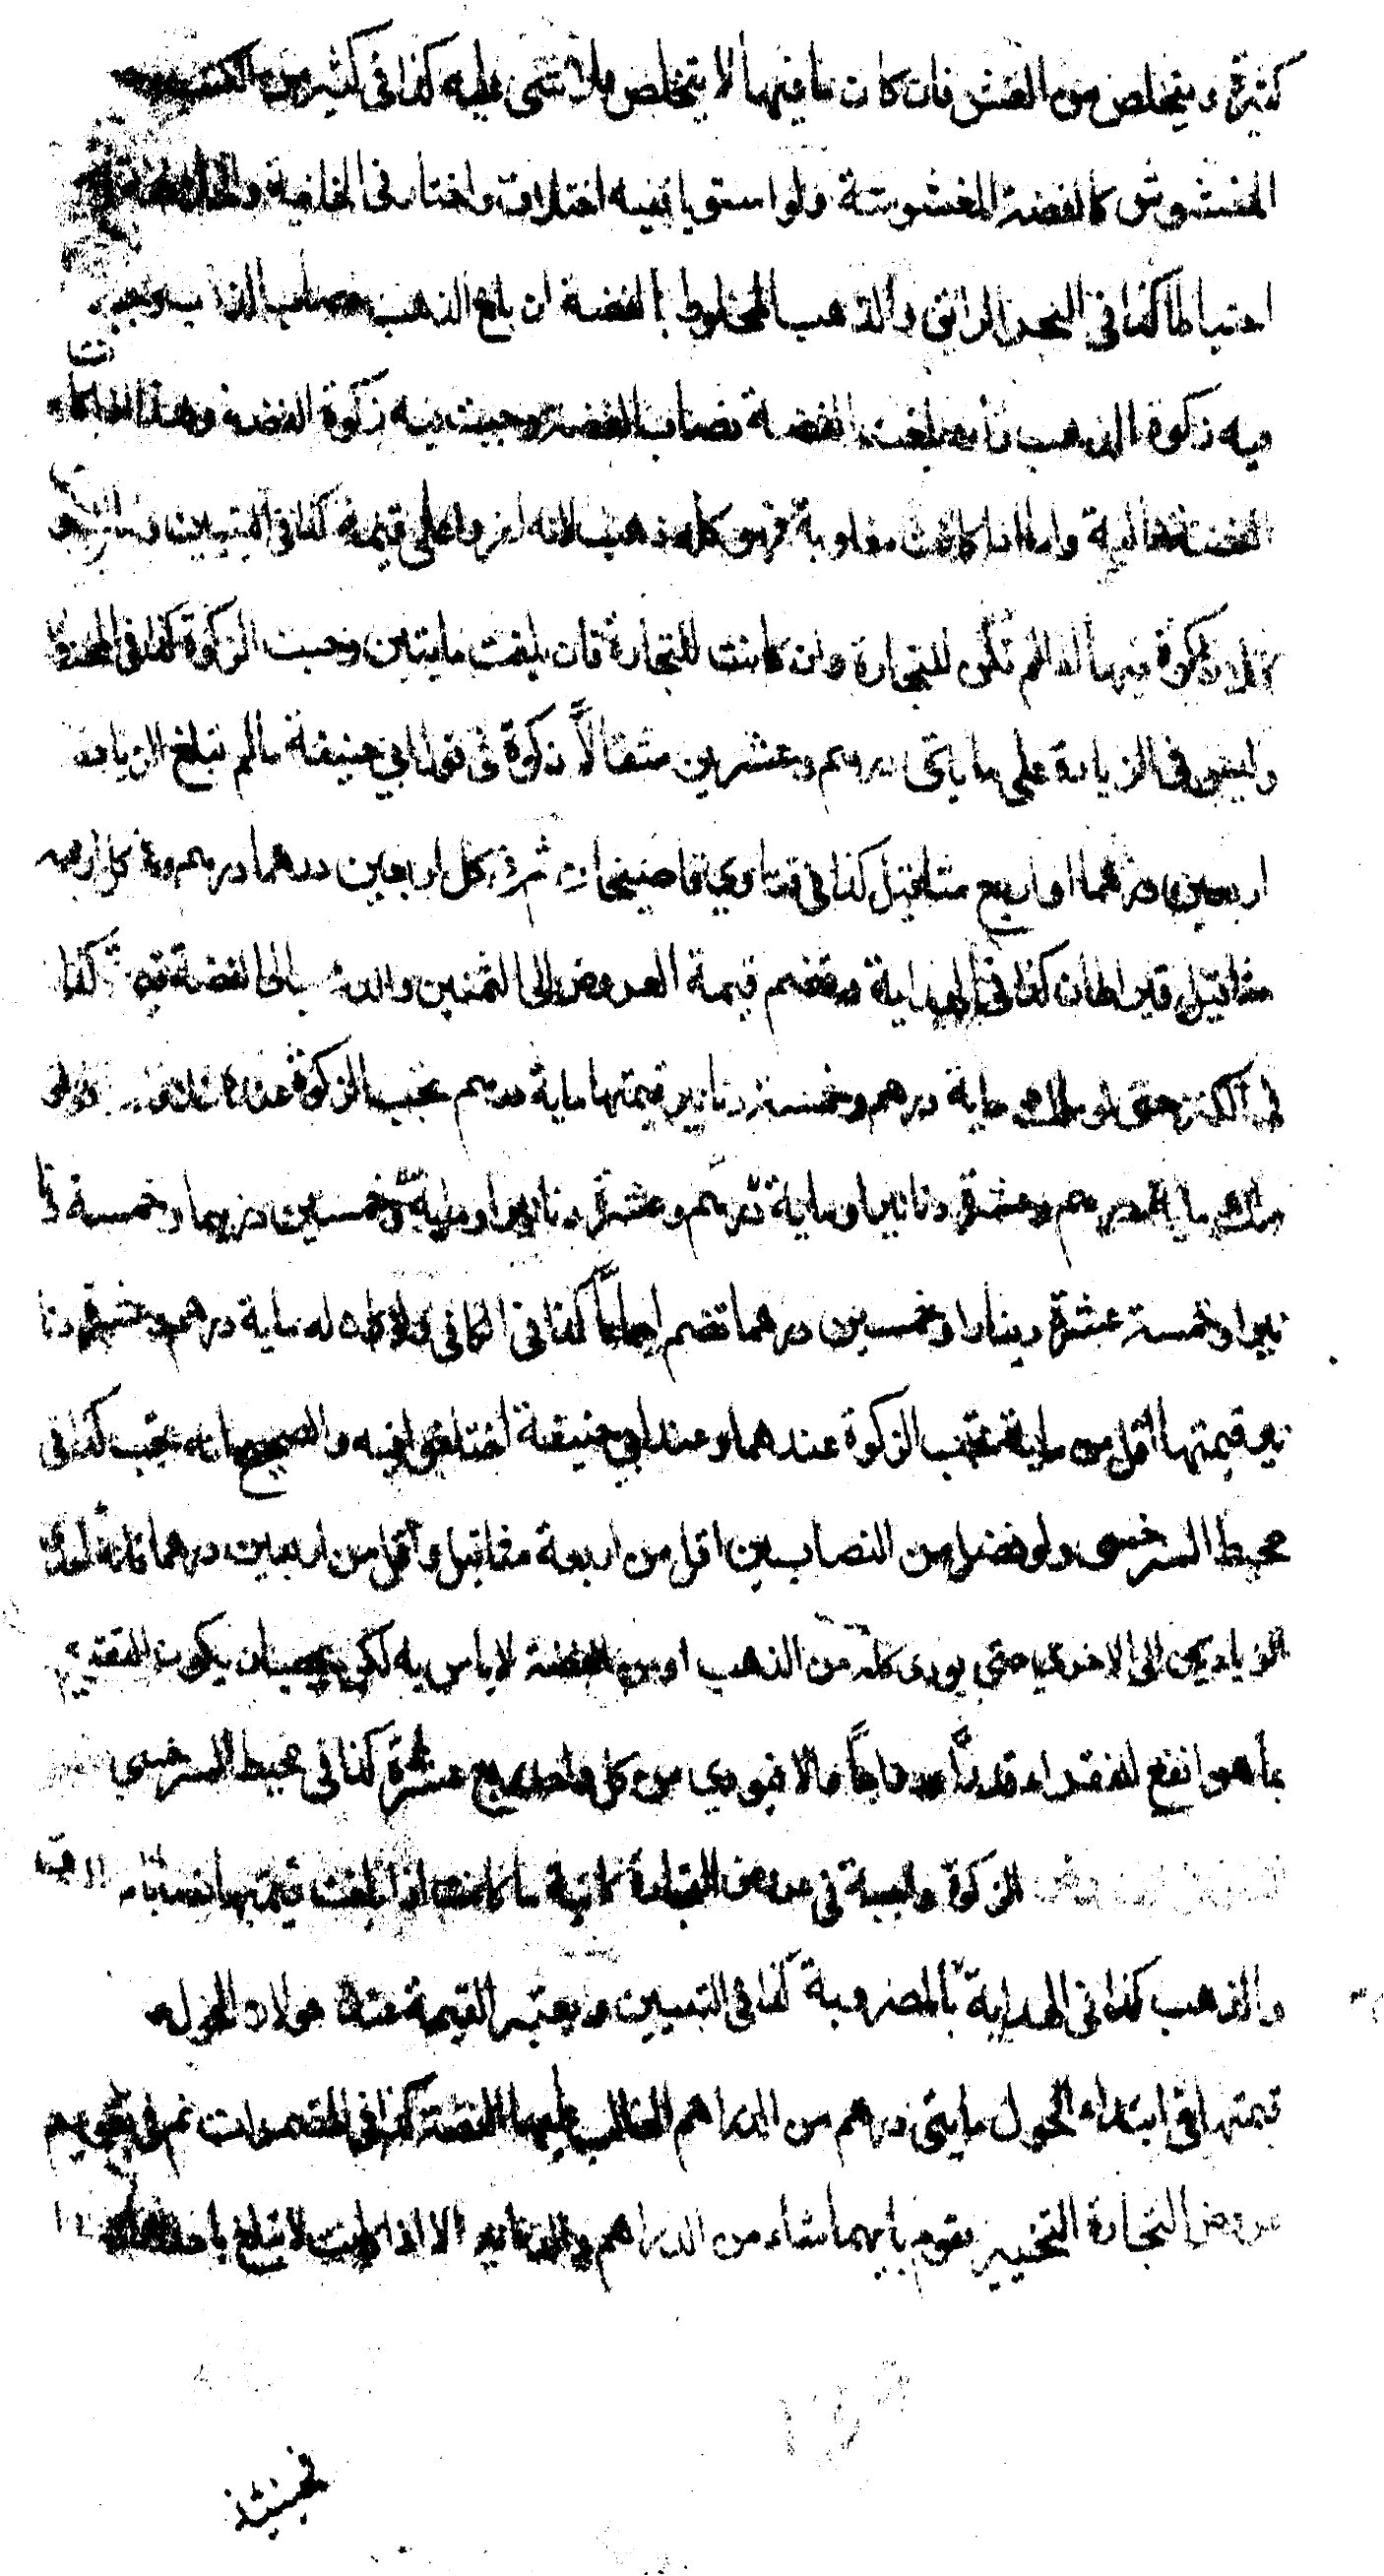 كثيرة ويتخلص من الغش فان كان ما فيها لا يتخلص فلا شئ عليه كذا في كثير من الكتب
المغشوش كالفضة المغشوشة ولو استويا ففيه اختلاف واختار في الخانية والخلاصة
احتياطا كذا في البحر الرائق والذهب المخلوط بالفضة ان بلغ الذهب نصاب الذهب وجبت
فيه زكوة الذهب وان بلغت الفضة نصاب الفضة وجبت فيه زكوة الفضة وهذا اذا كانت
الفضة غالبة واما اذا كانت مغلوبة فهو كله ذهب لانه اعز واعلى قيمة كذا في التبيين
فلا زكوة فيها اذا لم تكن للتجارة وان كانت للتجارة فان بلغت مايتين وجبت الزكوة كذا في
وليس في الزيادة على مايتى درهم وعشرين مثقالاً زكوة في قول ابي حنيفة مالم تبلغ الزيادة
اربعين درهما او اربع مثاقيل كذا في فتاوي قاضيخان ثم في كل اربعين درهما درهم وفي كل اربعة
مثاقيل قيراطان كذا في الهداية وتضم قيمة العروض الى الثمنين والذهب الى الفضة قيمة كذا
في الكنز حتى لو ملك ماية درهم وخمسة دنانير قيمتها ماية درهم تجب الزكوة عنده خلافا ولو
ملك ماية درهم وعشرة دنانير او ماية درهم وعشرة دنانير او ماية وخمسين درهما وخمسة دنا
نير او خمسة عشرة دينارا وخمسين درهما تضم اجماعاً كذا في الكافي ولو كان له ماية درهم وعشرة دنا
نير قيمتها اقل من ماية تجب الزكوة عندهما وعند ابي حنيفة اختلفوا فيه والصحيح انه تجب كذا في
محيط السرخسى ولو فضل من النصابين اقل من اربعة مثاقيل واقل من اربعين درهما فانه احدى
الزيادتين الى الاخرى حتى يودى كله من الذهب او من الفضة لا باس به لكن يجب ان يكون التقويم
بما هو انفع للفقراء قدراً ورواجاً والا فيودي من كل واحد ربع عشرة كذا في محيط السرخسي
الزكوة واجبة في عروض التجارة كائنة ما كانت اذا بلغت قيمتها نصابا من الورق
والذهب كذا في الهداية بالمضروبة كذا في التبيين ويعتبر القيمة عند حولان الحول
قيمتها في ابتداء الحول مايتى درهم من الدراهم الغالب عليها الفضة كذا في المضمرات ثم في تقويم
عروض التجارة التخيير يقوم بايهما شاء من الدراهم والدنانير الا اذا كانت لا تبلغ باحدهما
فحينئذ